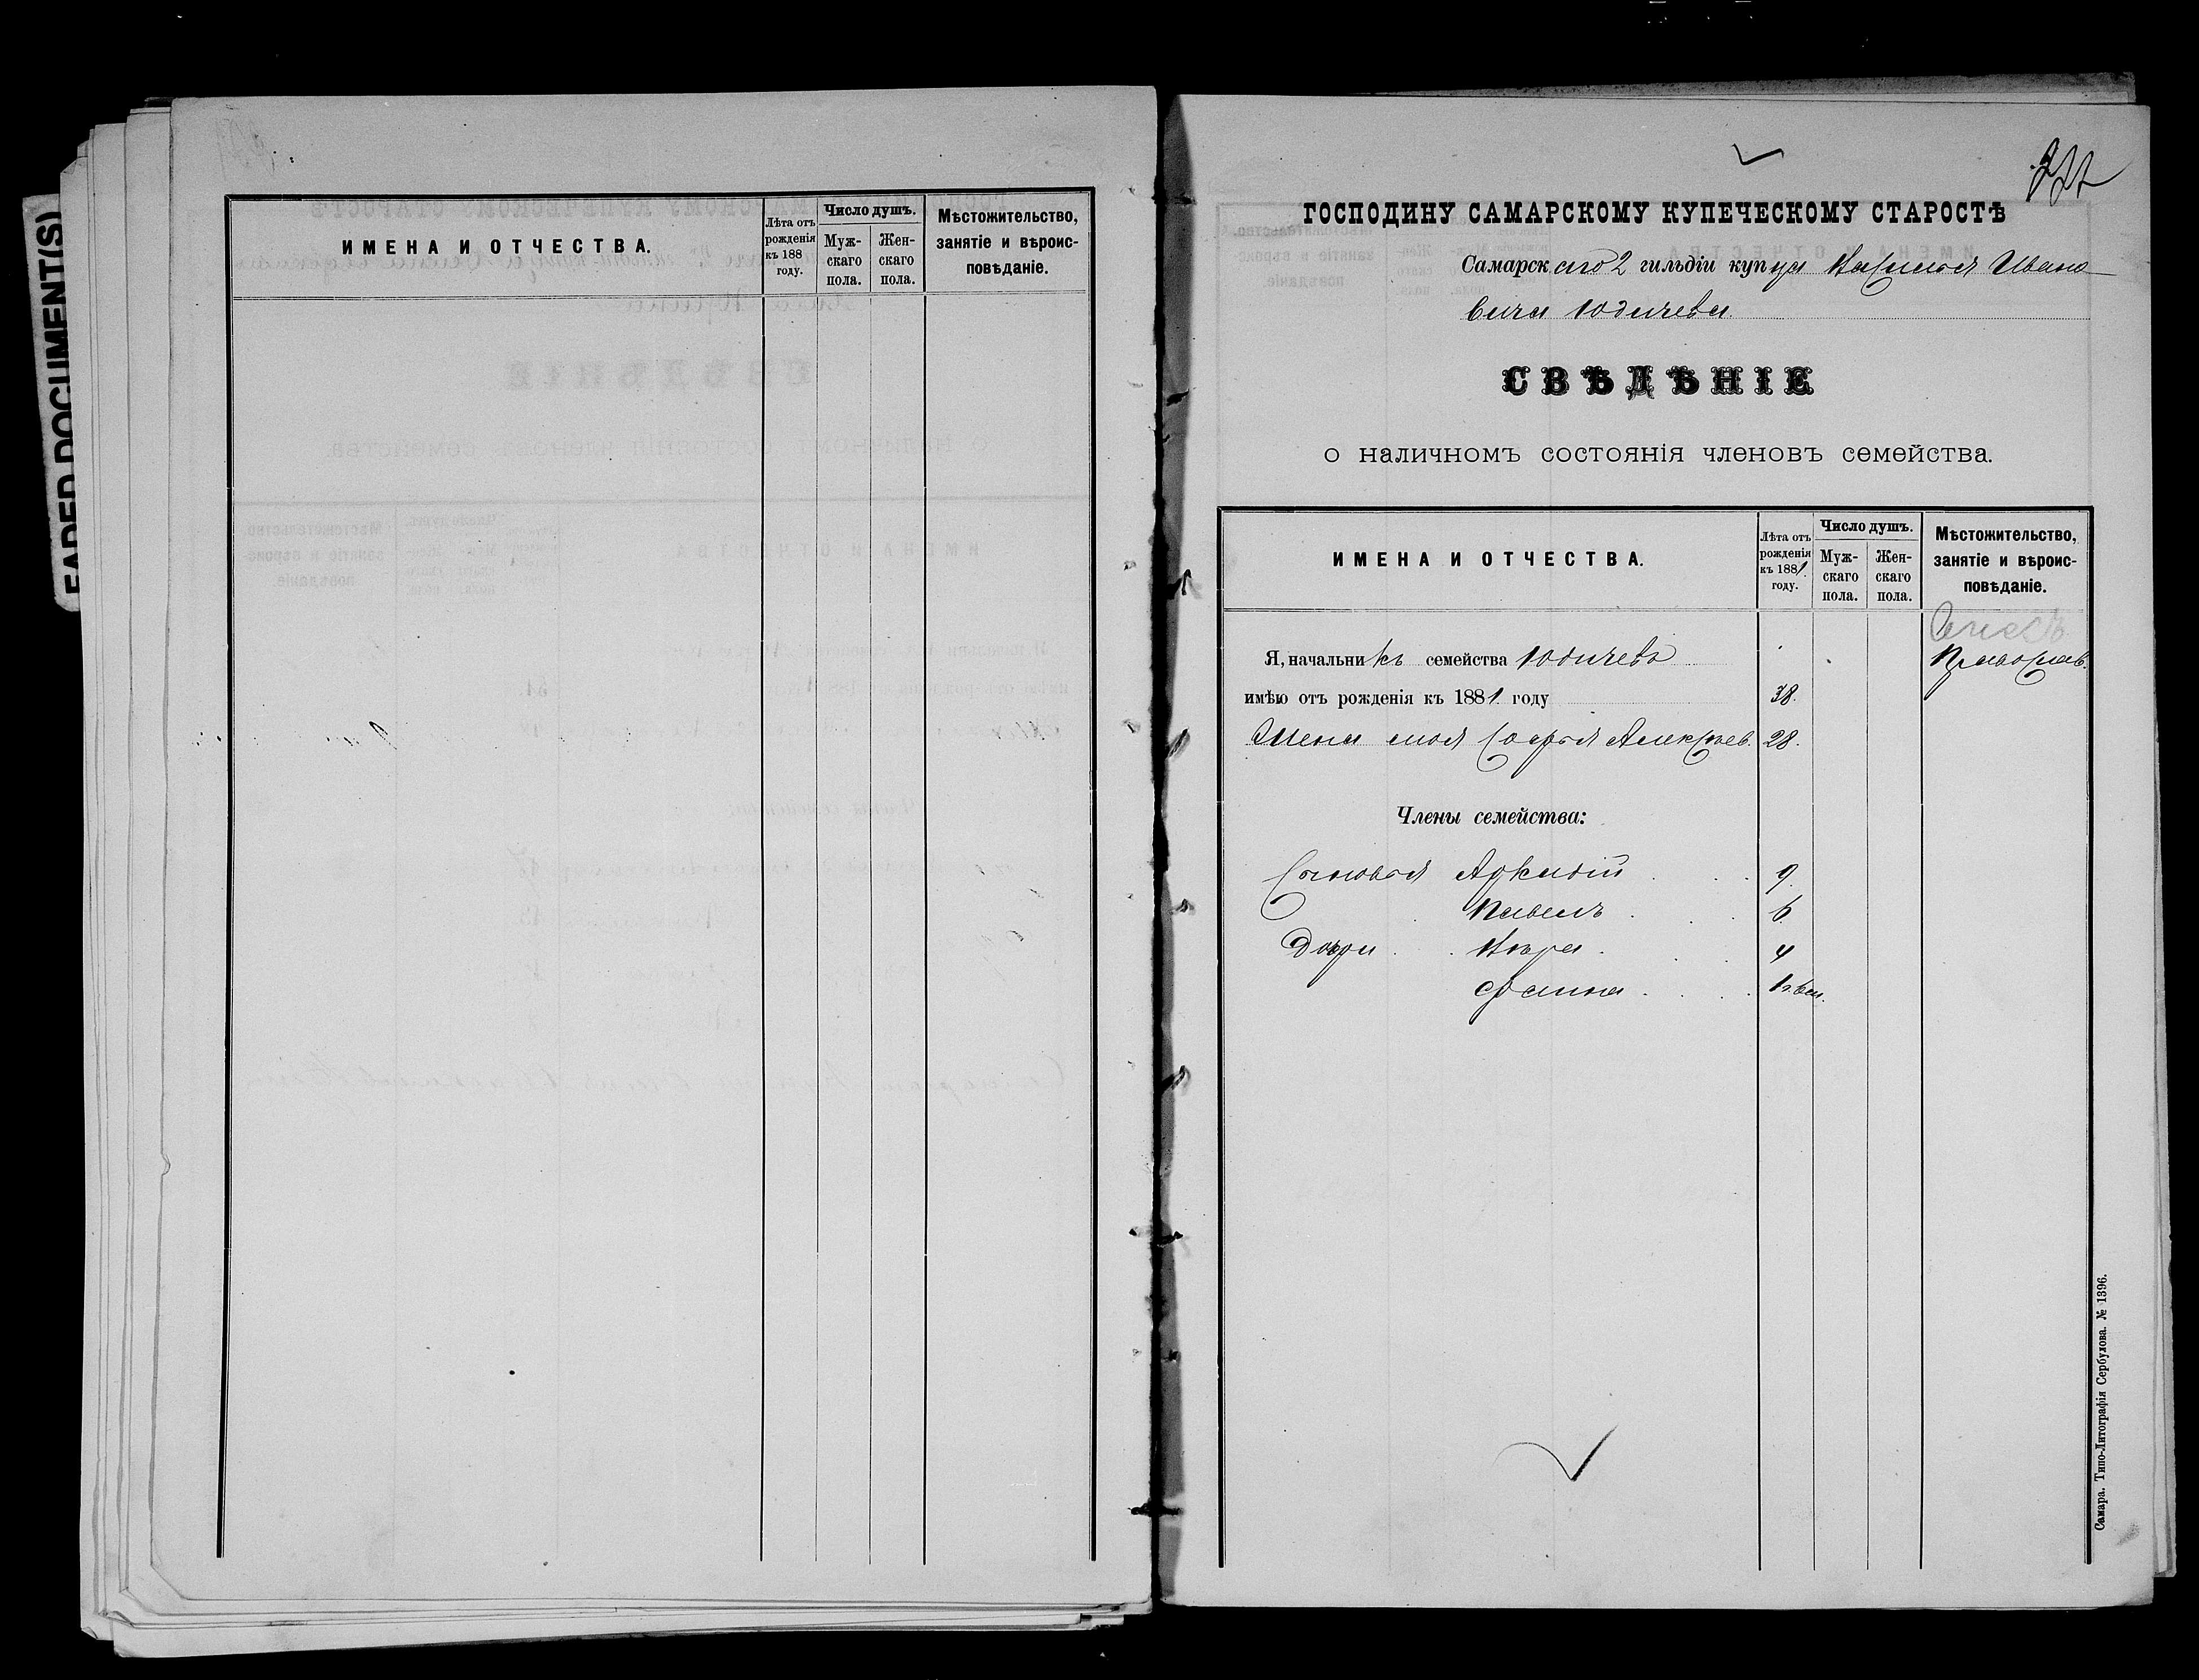 FADED DOCUMENT(S)
ИМЕНА И ОТЧЕСТВА.
Лѣта отъ рожденія къ 188 году.
Число душъ.
Мужскаго пола.
Женскаго пола.
Мѣстожительство, занятіе и вѣроисповѣданіе.
ГОСПОДИНУ САМАРСКОМУ КУПЕЧЕСКОМУ СТАРОСТѢ
Самарскаго 2 гильдіи купца Василья Ивано
вича Юдичева.
СВѢДѢНІЕ
о наличномъ состоянія членовъ семейства.
ИМЕНА И ОТЧЕСТВА.
Лѣта отъ рожденія къ 1881 году.
Число душъ.
Мужскаго пола.
Женскаго пола.
Мѣстожительство, занятіе и вѣроисповѣданіе.
Я, начальникъ семейства Юдичевъ
Православ.
имѣю отъ рожденія къ 1881 году 38.
Жена моя Софья Алексѣев. 28.
Члены семейства:
Сыновья Аркадій 9.
Павелъ 6
Дочери Вѣра 4
Фаина
Самара. Типо-Литографія Сербулова. № 1396.